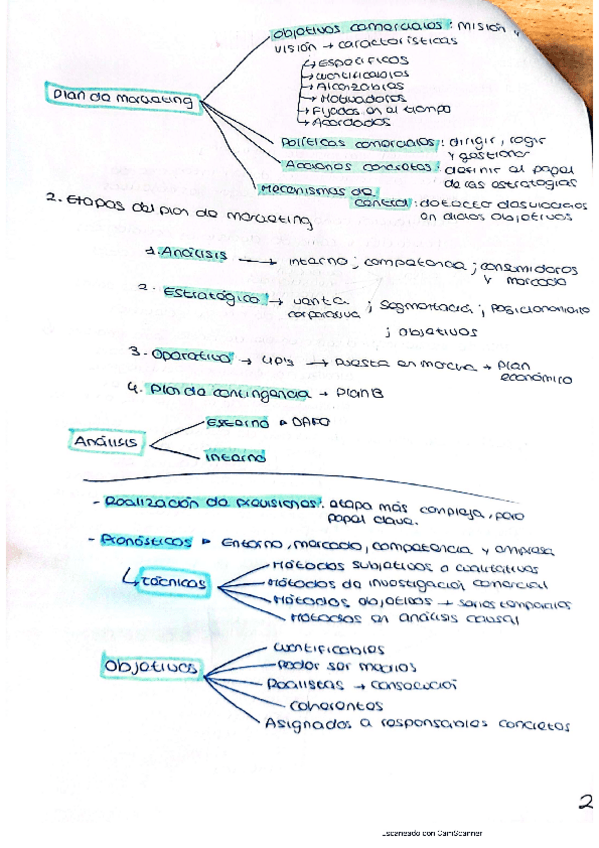 Objetivos comerciales: misión y
visión → características
↳ Específicos
→ Cuantificables
→ Alcanzables
→ Motivadores
→ Fijados en el tiempo
→ Acordados
Plan de marketing
Políticas comerciales: dirigir, coger
y gestionar
Acciones concretas: definir el papel
de las estrategias
Mecanismos de
control: detectar desviaciones
en dichos objetivos
2. Etapas del plan de marketing
1. Análisis → interno; competencia; consumidores
y mercado
2. Estratégico → venta ; segmentació ; posicionamiento
corporativa
; objetivos
3. Operativo → 4P's → Puesta en marcha → Plan
económico
4. Plan de contingencia → Plan B
Externo ▷ DAFO
Análisis
Interno
- Realización de previsiones: etapa más compleja, pero
papel clave.
- Pronósticos ▷ Entorno, mercado, competencia y empresa
↳ técnicas
Métodos subjetivos o cualitativos
Métodos de investigación comercial
Métodos objetivos → series temporales
Métodos en análisis causal
Objetivos
Cuantificables
Poder ser medios
Realistas → consecució
Coherentes
Asignados a responsables concretos
2
Escaneado con CamScanner